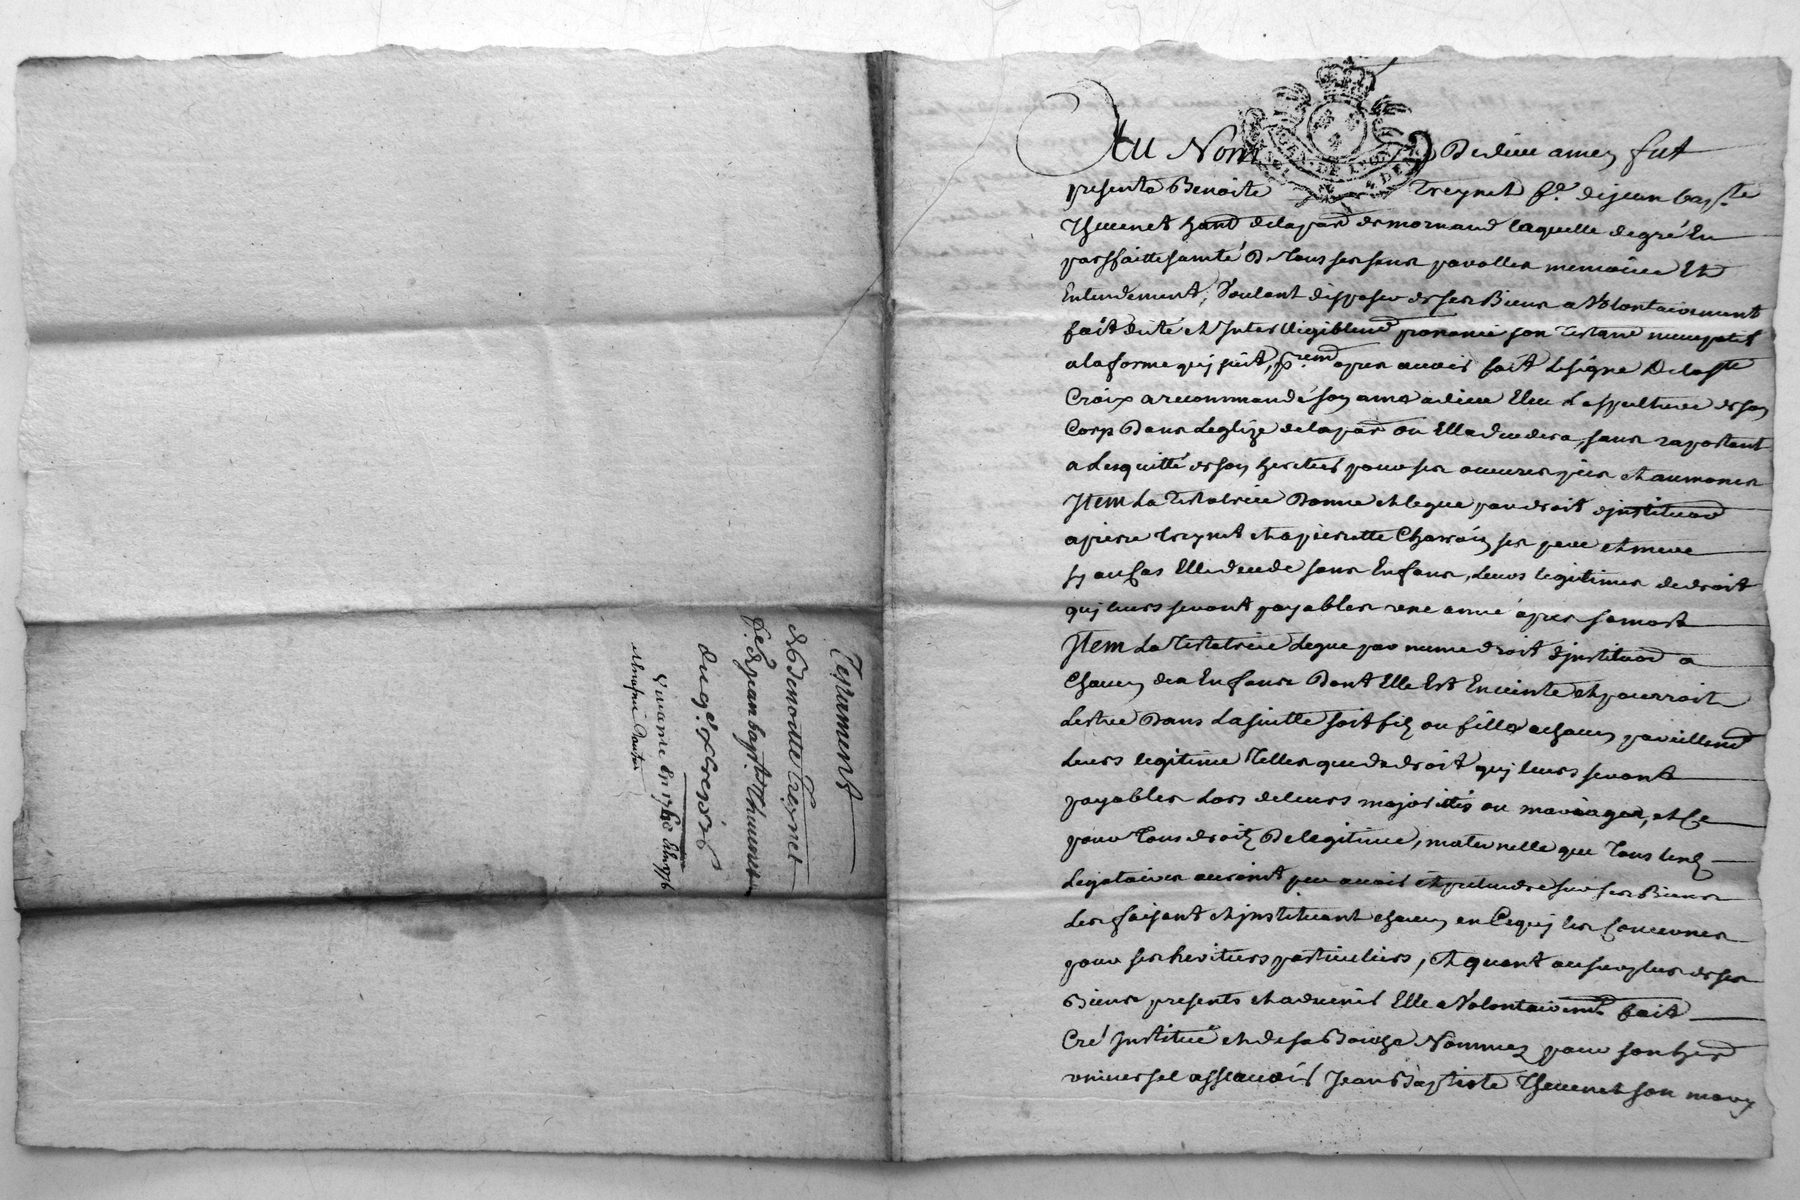 Testament
de Benoitte Treynet
fe. de jean bapt. Thevenet
du 9e
Au Nom De dieu amen fut
presente Benoite Treynet fe. de jean bapte
Thevenet habt de la par de mornand laquelle de gré En
parffaitte santé De tous ses sens parolles memoire Et
Entendement, Voulant disposer de ses Biens a Volontairement
fait dicté et Intelligiblemt prononcé son testamt nuncupatif
a la forme quj suit, premt apres avoir fait le signe De la ste
Croix a recommandé son ame a dieu Elue la sepulture de son
Corp Dans leglize de la par ou Elle decedera, sans raportant
a lesquitté de son heritier pour ses oeuvres pies et aumones
Item La Testatrice Donne et legue par droit djnstitution
a pierre treynet et a pierrette Charvin ses pere et mere
sy au Cas Elle decede sans Enfans, leurs legitimes de droit
quj leurs seront payables une année apres sa mort
Item La Testatrice legue par meme droit djnstitution a
Chacun des Enfans Dont Elle Est Enceinte et pourroit
lestre Dans la suitte soit fils ou filles a chacun pareillemt
leurs legitime telles que de droit quj leurs seront
payables lors de leurs majorités ou mariages, et Ce
pour tous droits De legitime, maternelle que tous lesd
legataires auroint peu avoir et pretendre sur ses Biens
les faisant et jnstituant chacun en Ce quj les Concernes
pour ses heritiers particuliers, Et quant au surplus de ses
Biens presents et advenir Elle a Volontairemt fait
Créé Institué et de sa Bouche Nommez pour son herer
universel assavoir Jean Baptiste Thevenet son mary